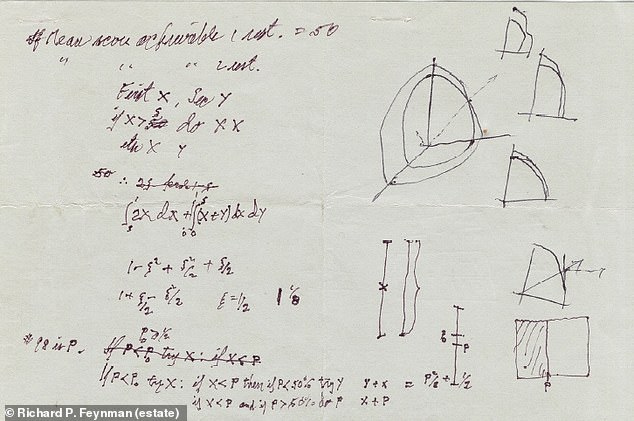 If Mean score achievable 1 rest. = 50
" " " 2 rest.
First X, Sec Y
if X > ξ do X X
X Y
50 ∴
∫ 2X dX + ∫∫(X+Y)dX dY
1 - ξ² + ξ²/2 + ξ/2
1 + ξ/2 - ξ²/2 ξ = 1/2 1 1/8
P₀ > 1/2
If P<P₀ try X: if X<P
If P<P₀ try X: if X<P then if P<50% try Y Y+X = P²/2 + 1/2
if X<P and if P>50% do P X+P
X
P
P
© Richard P. Feynman (estate)